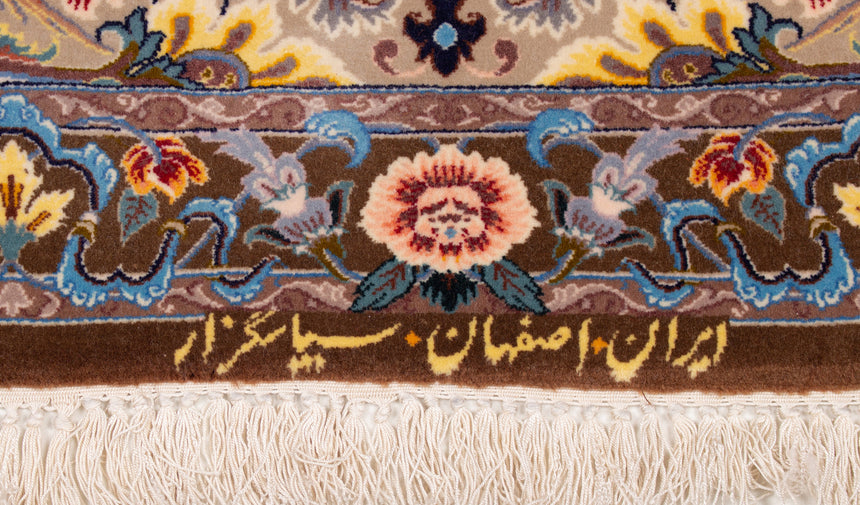 ایران • اصفهان • سپاسگزار